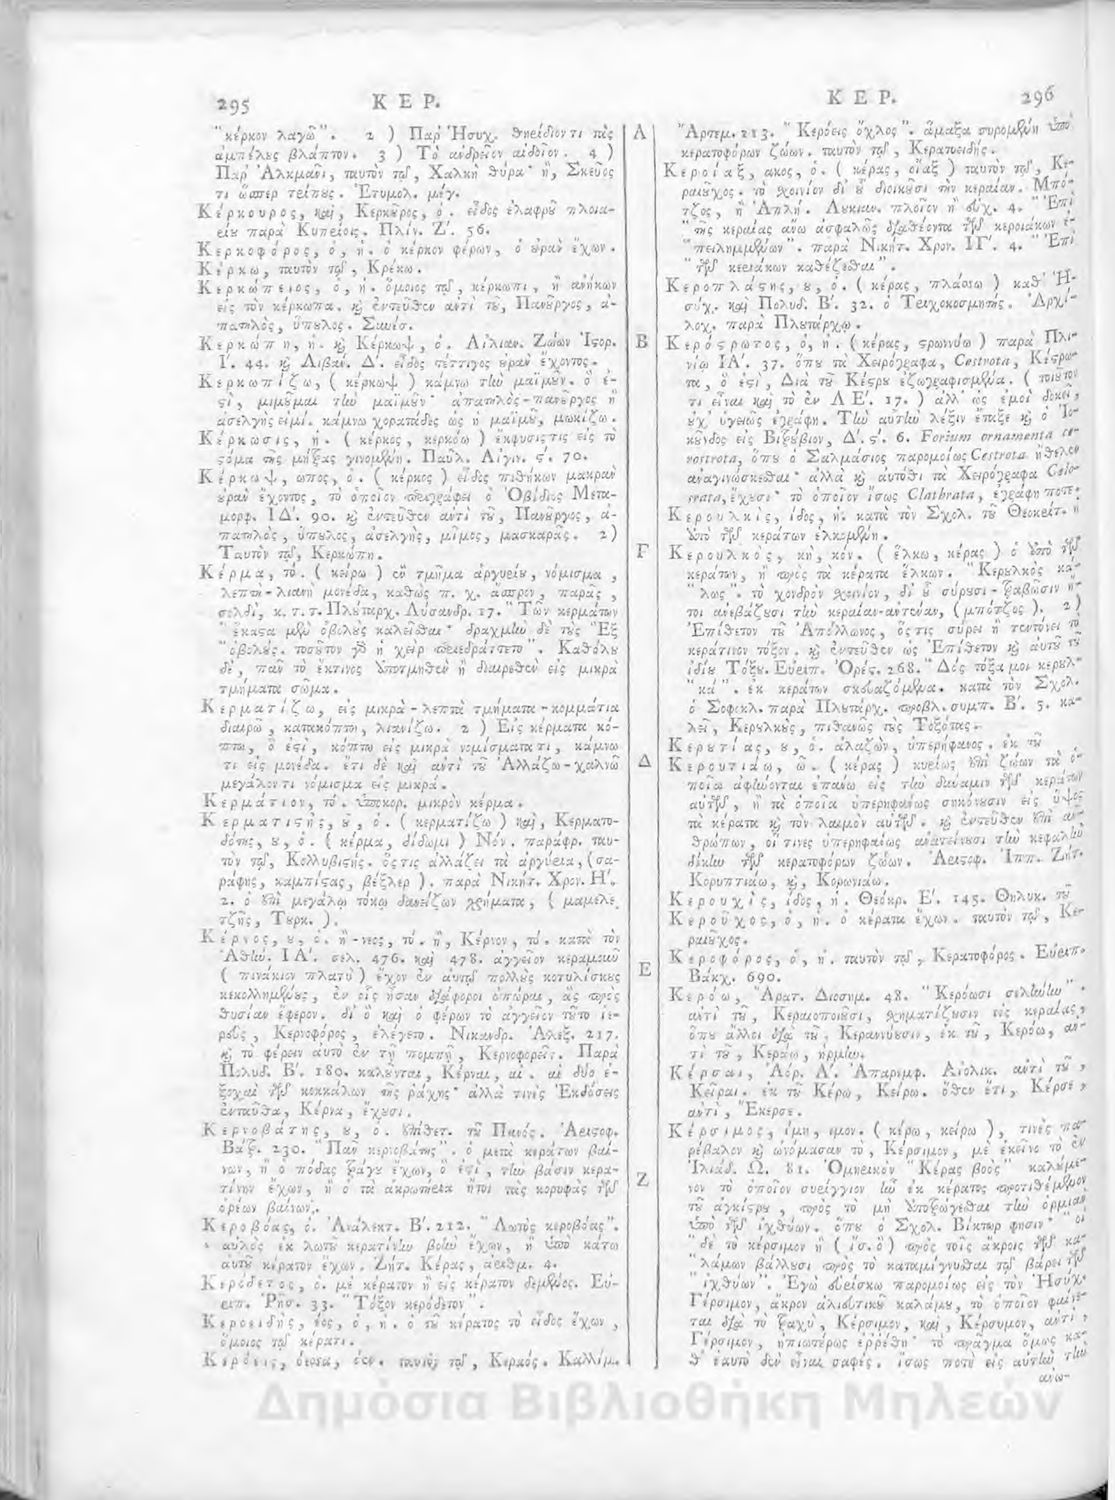 295 ΚΕΡ.
"κέρκον λαγῶ". 2 ) Παρ' Ἡσυχ. θηείδιόν τι τὰς
ἀμπέλους βλάπτον. 3 ) Τὸ ἀνδρεῖον αἰδοῖον. 4 )
Παρ' Ἀλκμᾶνι, ταυτὸν τῷ, Χαλκῆ θύρα· ἢ, Σκεῦός
τι ὥσπερ τρίπους. Ἐτυμολ. μέγ.
Κέρκουρος, καὶ, Κερκοῦρος, ὁ. εἶδος ἐλαφροῦ πλοια-
είου παρὰ Κυπρίοις. Πλίν. Ζ'. 56.
Κερκοφόρος, ὁ, ἡ. ὁ κέρκον φέρων, ὁ οὐρὰν ἔχων.
Κέρκω, ταυτὸν τῷ, Κρέκω.
Κερκώπειος, ὁ, ἡ. ὅμοιος τῷ, κέρκωπι, ἢ ἀνήκων
εἰς τὸν κέρκωπα. καὶ ἐντεῦθεν ἀντὶ τοῦ, Πανοῦργος, ἀ-
πατηλὸς, ὕπουλος. Σουίδ.
Κερκώπη, ἡ. καὶ Κέρκωψ, ὁ. Αἰλιαν. Ζώων Ἱστορ.
Ι'. 44. καὶ Λιβαν. Δ'. εἶδος τέττιγος οὐρὰν ἔχοντος.
Κερκωπίζω, ( κέρκωψ ) κάμνω τὴν μαϊμοῦν. ὅ ἐ-
στὶ, μιμοῦμαι τὴν μαϊμοῦν· ἀπατηλὸς-πανοῦργος ἢ
ἀσελγής εἰμί. κάμνω χορατάδες ὡς ἡ μαϊμοῦ, μωκίζω.
Κέρκωσις, ἡ. ( κέρκος, κερκόω ) ἔκφυσίς τις εἰς τὸ
στόμα τῆς μήτρας γινομένη. Παῦλ. Αἰγιν. ς'. 70.
Κέρκωψ, ωπος, ὁ. ( κέρκος ) εἶδος πιθήκων μακρὰν
οὐρὰν ἔχοντος, τὸ ὁποῖον περιγράφει ὁ Ὀβίδιος Μετα-
μορφ. ΙΔ'. 90. καὶ ἐντεῦθεν ἀντὶ τοῦ, Πανοῦργος, ἀ-
πατηλὸς, ὕπουλος, ἀσελγὴς, μῖμος, μασκαρᾶς. 2)
Ταυτὸν τῷ, Κερκώπη.
Κέρμα, τό. ( κείρω ) ἓν τμῆμα ἀργυρίου, νόμισμα,
λεπτὴ-λιανὴ μονέδα, καθὼς π. χ. ἄσπρον, παρᾶς,
σολδὶ, κ. τ. τ. Πλούταρχ. Λύσανδρ. 17. "Τῶν κερμάτων
"ἕκαστα μὲν ὀβολοὺς καλεῖσθαι· δραχμὴν δὲ τοὺς "Ἓξ
"ὀβολούς. τοσοῦτον γὰρ ἡ χεὶρ περιεδράττετο". Καθόλου
δὲ, πᾶν τὸ ἔκ τινος ἀποτμηθὲν ἢ διαιρεθὲν εἰς μικρὰ
τμήματα σῶμα.
Κερματίζω, εἰς μικρὰ-λεπτὰ τμήματα-κομμάτια
διαιρῶ, κατακόπτω, λιανίζω. 2 ) Εἰς κέρματα κό-
πτω, ὅ ἐστὶ, κόπτω εἰς μικρὰ νομίσματά τι, κάμνω
τι εἰς μονέδα. ἔτι δὲ καὶ ἀντὶ τοῦ Ἀλλάζω-χαλνῶ
μεγάλον τι νόμισμα εἰς μικρά.
Κερμάτιον, τό. ὑποκορ. μικρὸν κέρμα.
Κερματιστὴς, οῦ, ὁ. ( κερματίζω ) καὶ, Κερματο-
δότης, ου, ὁ. ( κέρμα, δίδωμι ) Νόν. παράφρ. ταυ-
τὸν τῷ, Κολλυβιστής. ὅστις ἀλλάζει τὰ ἀργύρια, (σα-
ράφης, καμπίστας, βέξλερ ). παρὰ Νικήτ. Χρον. Η'.
2. ὁ ἐπὶ μεγάλῳ τόκῳ δανείζων χρήματα, ( μαμελε
τζῆς, Τουρκ. ).
Κέρνος, ου, ὁ. ἢ -νεος, τό. ἢ, Κέρνον, τό. κατὰ τὸν
Ἀθήν. ΙΑ'. σελ. 476. καὶ 478. ἀγγεῖον κεραμεοῦν
( πινάκιον πλατὺ ) ἔχον ἐν αὐτῷ πολλοὺς κοτυλίσκους
κεκολλημένους, ἐν οἷς ἦσαν διάφοροι ὀπῶραι, ἃς πρὸς
θυσίαν ἔφερον. δι' ὃ καὶ ὁ φέρων τὸ ἀγγεῖον τοῦτο ἱε-
ρεὺς, Κερνοφόρος, ἐλέγετο. Νίκανδρ. Ἀλεξ. 217.
καὶ τὸ φέρειν αὐτὸ ἐν τῇ πομπῇ, Κερνοφορεῖν. Παρὰ
Πολυδ. Β'. 180. καλοῦνται, Κέρναι, αἱ. αἱ δύο ἐ-
ξοχαὶ τῶν κοκκάλων τῆς ῥάχης· ἀλλὰ τινὲς Ἐκδόσεις
ἐνταῦθα, Κέρνα, ἔχουσι.
Κερνοβάτης, ου, ὁ. ἐπίθετ. τοῦ Πανός. Ἀριστοφ.
Βάτρ. 230. "Πᾶν κεροβάτης". ὁ μετὰ κεράτων βαί-
νων, ἢ ὁ πόδας τράγου ἔχων, ὅ ἐστὶ, τὴν βάσιν κερα-
τίνην ἔχων, ἢ ὁ τὰ ἀκρωτήρια ἤτοι τὰς κορυφὰς τῶν
ὀρέων βαίνων.
Κεροβόας, ὁ. Ἀνάλεκτ. Β'. 212. "Λωτὸς κεροβόας".
αὐλὸς ἐκ λωτοῦ κερατίνην βοὴν ἔχων, ἢ ὑπὸ κάτω
αὐτοῦ κέρατον ἔχων. Ζήτ. Κέρας, ἀριθμ. 4.
Κερόδετος, ὁ. μὲ κέρατον ἢ εἰς κέρατον δεμένος. Εὐ-
ριπ. Ῥῆσ. 33. "Τόξον κερόδετον".
Κεροειδὴς, έος, ὁ, ἡ. ὁ τοῦ κέρατος τὸ εἶδος ἔχων,
ὅμοιος τῷ κέρατι.
Κερόεις, όεσσα, όεν. ταυτὸν τῷ, Κεραός. Καλλίμ.
Α
Β
Γ
Δ
Ε
Ζ
ΚΕΡ. 296
"Ἄρτεμ. 213. "Κερόεις ὄχλος". ἅμαξα συρομένη ὑπὸ
κερατοφόρων ζώων. ταυτὸν τῷ, Κερατοειδής.
Κεροίαξ, ακος, ὁ. ( κέρας, οἴαξ ) ταυτὸν τῷ, Κε-
ραιοῦχος. τὸ σχοινίον δι' οὗ διοικοῦσι τὴν κεραίαν. Μπό-
τζος, ἢ Ἀπλῆ. Λουκιαν. πλοῖον ἢ εὐχ. 4. "Ἐπὶ
"τῆς κεραίας ἄνω ἀσφαλῶς διαθέοντα τῶν κεροιάκων ἐ-
"πειλημμένων". παρὰ Νικήτ. Χρον. ΙΓ'. 4. "Ἐπὶ
"τῶν κεροιάκων καθέζεσθαι".
Κεροπλάστης, ου, ὁ. ( κέρας, πλάσσω ) καθ' Ἡ-
σύχ. καὶ Πολυδ. Β'. 32. ὁ Τριχοκοσμητής. Ἀρχί-
λοχ. παρὰ Πλουτάρχῳ.
Κερόστρωτος, ὁ, ἡ. ( κέρας, στρωννύω ) παρὰ Πλι-
νίῳ ΙΑ'. 37. ὅπου τὰ Χειρόγραφα, Cestrota, Κέστρω-
τα, ὅ ἐστὶ, Διὰ τοῦ Κέστρου ἐζωγραφισμένα. ( τοιοῦτόν
τι εἶναι καὶ τὸ ἐν ΛΕ'. 17. ) ἀλλ' ὡς ἐμοὶ δοκεῖ,
οὐχ' ὑγειῶς ἐγράφη. Τὴν αὐτὴν λέξιν ἔταξε καὶ ὁ Ἰο-
κοῦνδος εἰς Βιτρούβιον, Δ'. ς'. 6. Forium ornamenta ce-
rostrota, ὅπου ὁ Σαλμάσιος παρομοίως Cestrota ἤθελεν
ἀναγινώσκεσθαι· ἀλλὰ καὶ αὐτόθι τὰ Χειρόγραφα Celo-
strata, ἔχουσι· τὸ ὁποῖον ἴσως Clathrata, ἐγράφη ποτέ.
Κερουλκὶς, ίδος, ἡ. κατὰ τὸν Σχολ. τοῦ Θεοκρίτ. ἡ
ὑπὸ τῶν κεράτων ἑλκομένη.
Κερουλκὸς, κὴ, κόν. ( ἕλκω, κέρας ) ὁ ὑπὸ τῶν
κεράτων, ἢ πρὸς τὰ κέρατα ἕλκων. "Κερουλκὸς κά-
"λως". τὸ χονδρὸν σχοινίον, δι' οὗ σύρουσι-τραβῶσιν ἤ-
τοι ἀνεβάζουσι τὴν κεραίαν-ἀντέναν, (μπότζος ). 2)
Ἐπίθετον τοῦ Ἀπόλλωνος, ὅστις σύρει ἢ τεντόνει τὸ
κεράτινον τόξον. καὶ ἐντεῦθεν ὡς Ἐπίθετον καὶ αὐτοῦ τοῦ
ἰδίου Τόξου. Εὐριπ. Ὀρές. 268. "Δός τόξα μοι κερουλ-
"κά". ἐκ κεράτων σκευαζόμενα. κατὰ τὸν Σχολ.
ὁ Σοφοκλ. παρὰ Πλουτάρχ. προβλ. συμπ. Β'. 5. κα-
λεῖ, Κερουλκοὺς, πιθανῶς τοὺς Τοξότας.
Κερουτίας, ου, ὁ. ἀλαζὼν, ὑπερήφανος. ἐκ τοῦ
Κερουτιάω, ῶ. ( κέρας ) κυρίως ἐπὶ ζώων τὰ ὁ-
ποῖα ἀφίωονται ἐπάνω εἰς τὴν δύναμιν τῶν κεράτων
αὐτῶν, ἢ τὰ ὁποῖα ὑπερηφάνως σηκόνουσιν εἰς ὕψος
τὰ κέρατα καὶ τὸν λαιμὸν αὐτῶν. καὶ ἐντεῦθεν ἐπὶ ἀν-
θρώπων, οἵ τινες ὑπερηφάνως ἀνατείνουσι τὴν κεφαλὴν
δίκην τῶν κερατοφόρων ζώων. Ἀριστοφ. Ἱππ. Ζήτ.
Κορυπτιάω, καὶ, Κορωνιάω.
Κερουχὶς, ίδος, ἡ. Θεόκρ. Ε'. 145. Θηλυκ. τοῦ
Κεροῦχος, ὁ, ἡ. ὁ κέρατα ἔχων. ταυτὸν τῷ, Κε-
ραιοῦχος.
Κεροφόρος, ὁ, ἡ. ταυτὸν τῷ, Κερατοφόρος. Εὐριπ.
Βάκχ. 690.
Κερόω, Ἄρατ. Διοσημ. 48. "Κερόωσι σελήνην".
ἀντὶ τοῦ, Κεραιοποιοῦσι, σχηματίζουσιν εἰς κεραίας,
ὅπου ἄλλοι διὰ τοῦ, Κεραννύουσιν, ἐκ τοῦ, Κερόω, ἀν-
τὶ τοῦ, Κεράω, ἡρμήν.
Κέρσαι, Ἀόρ. Α'. Ἀπαρνμφ. Αἰολικ. ἀντὶ τοῦ,
Κεῖραι. ἐκ τοῦ Κέρω, Κείρω. ὅθεν ἔτι, Κέρσε,
ἀντὶ, Ἔκερσε.
Κέρσιμος, ίμη, ιμον. ( κέρω, κείρω ), τινὲς πα-
ρέβαλον καὶ ὠνόμασαν τὸ, Κέρσιμον, μὲ ἐκεῖνο τὸ ἐν
Ἰλιάδ. Ω. 81. Ὁμηρικὸν "Κέρας βοὸς" καλούμε-
νον τὸ ὁποῖον συρίγγιον ἦν ἐκ κέρατος προτιθέμενον
τοῦ ἀγκίστρου, πρὸς τὸ μὴ ἀποτρώγεσθαι τὴν ὁρμιὰν
ὑπὸ τῶν ἰχθύων. ὅπου ὁ Σχολ. Βίκτωρ φησὶν "οἱ
"δὲ τὸ κέρσιμον ἢ ( ἴσ. ὃ ) πρὸς τοῖς ἄκροις τῶν κα-
"λάμων βάλλουσι πρὸς τὸ καταμίγνυσθαι τῷ βάρει τῶν
"ἰχθύων". Ἐγὼ εὑρίσκω παρομοίως εἰς τὸν Ἡσύχ.
Γέρσιμον, ἄκρον ἁλιευτικοῦ καλάμου, τὸ ὁποῖον φαίνε-
ται διὰ τὸ τραχὺ, Κέρσιμον, καὶ, Κέρσυμον, ἀντὶ,
Γέρσιμον, ἠπιωτέρως ἐρρέθη· τὸ πρᾶγμα ὅμως κα-
θ' ἑαυτὸ δὲν εἶναι σαφές. ἴσως ποτὲ εἰς αὐτὴν τὴν
ἄνω-
Δημόσια Βιβλιοθήκη Μηλεών